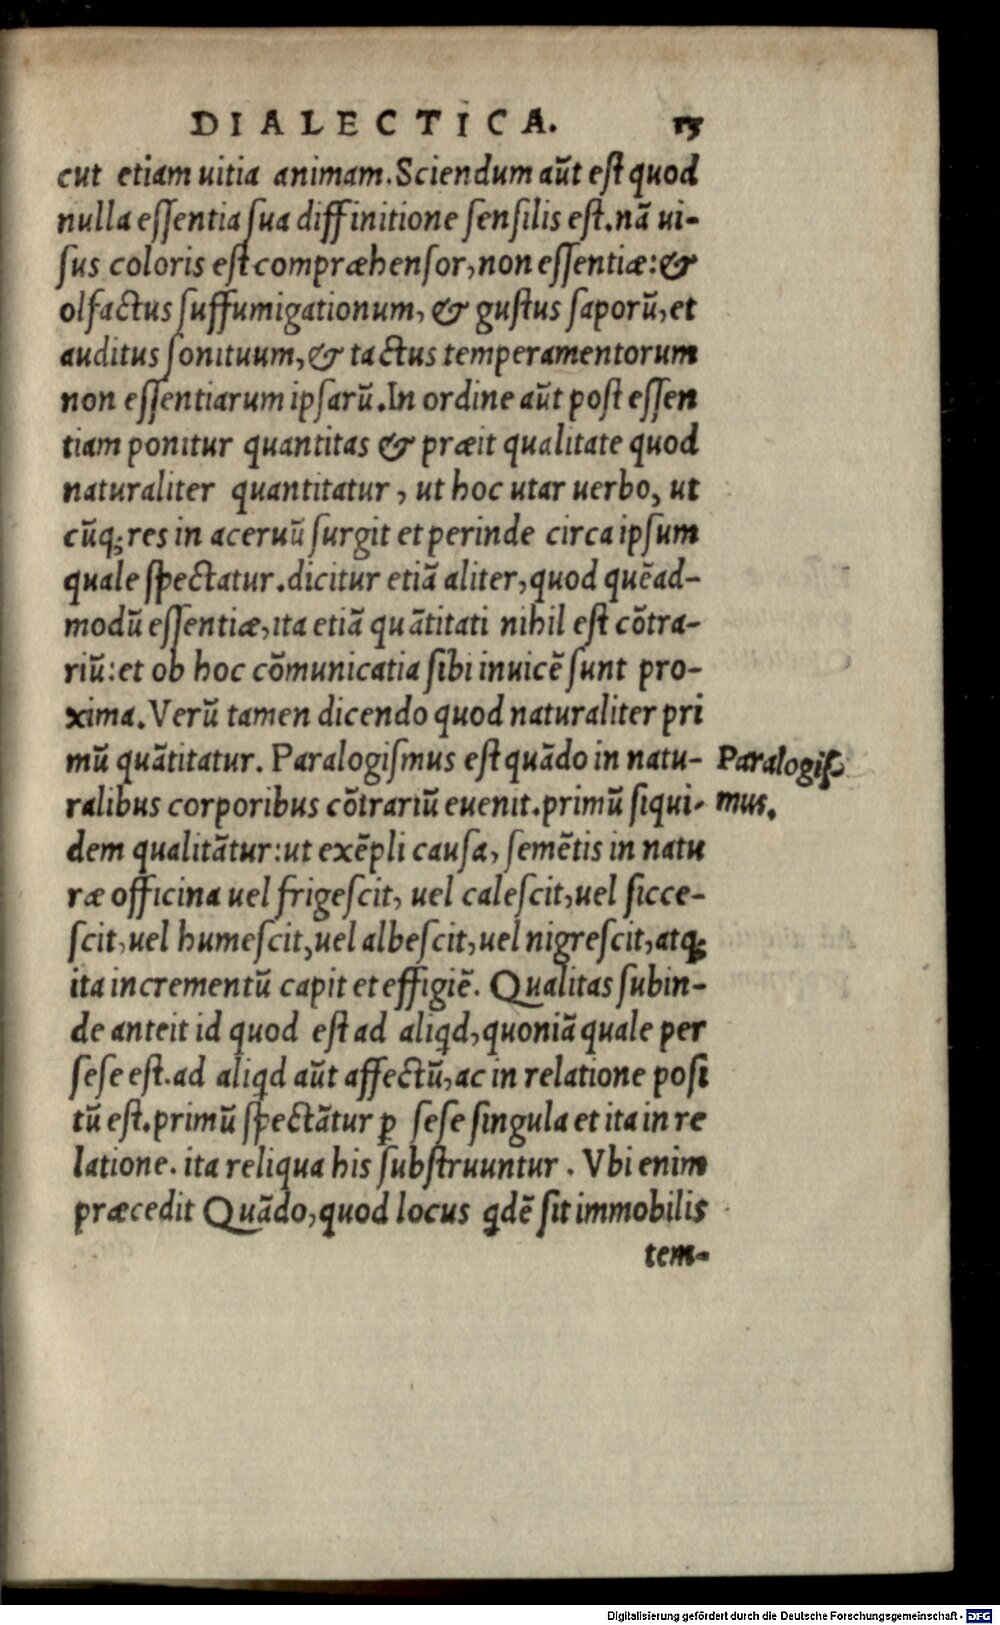 DIALECTICA. 15
cut etiam uitia animam. Sciendum aūt est quod
nulla essentia sua diffinitione sensilis est. nā ui-
sus coloris est compræhensor, non essentiæ: &
olfactus suffumigationum, & gustus saporū, et
auditus sonituum, & tactus temperamentorum
non essentiarum ipsarū. In ordine aūt post essen
tiam ponitur quantitas & præit qualitate quod
naturaliter quantitatur, ut hoc utar uerbo, ut
cūq; res in aceruū surgit et perinde circa ipsum
quale spectatur. dicitur etiā aliter, quod quēad-
modū essentiæ, ita etiā quātitati nihil est cōtra-
riū: et ob hoc cōmunicatia sibi inuicē sunt pro-
xima. Verū tamen dicendo quod naturaliter pri
mū quātitatur. Paralogismus est quādo in natu-
Paralogis
ralibus corporibus cōtrariū euenit. primū siqui-
mus.
dem qualitātur: ut exēpli causa, semētis in natu
ræ officina uel frigescit, uel calescit, uel sicce-
scit, uel humescit, uel albescit, uel nigrescit, atq;
ita incrementū capit et effigiē. Qualitas subin-
de anteit id quod est ad aliqd, quoniā quale per
sese est. ad aliqd aūt affectū, ac in relatione posi
tū est. primū spectātur ꝑ sese singula et ita in re
latione. ita reliqua his substruuntur. Vbi enim
præcedit Quādo, quod locus qdē sit immobilis
tem-
Digitalisierung gefördert durch die Deutsche Forschungsgemeinschaft - DFG